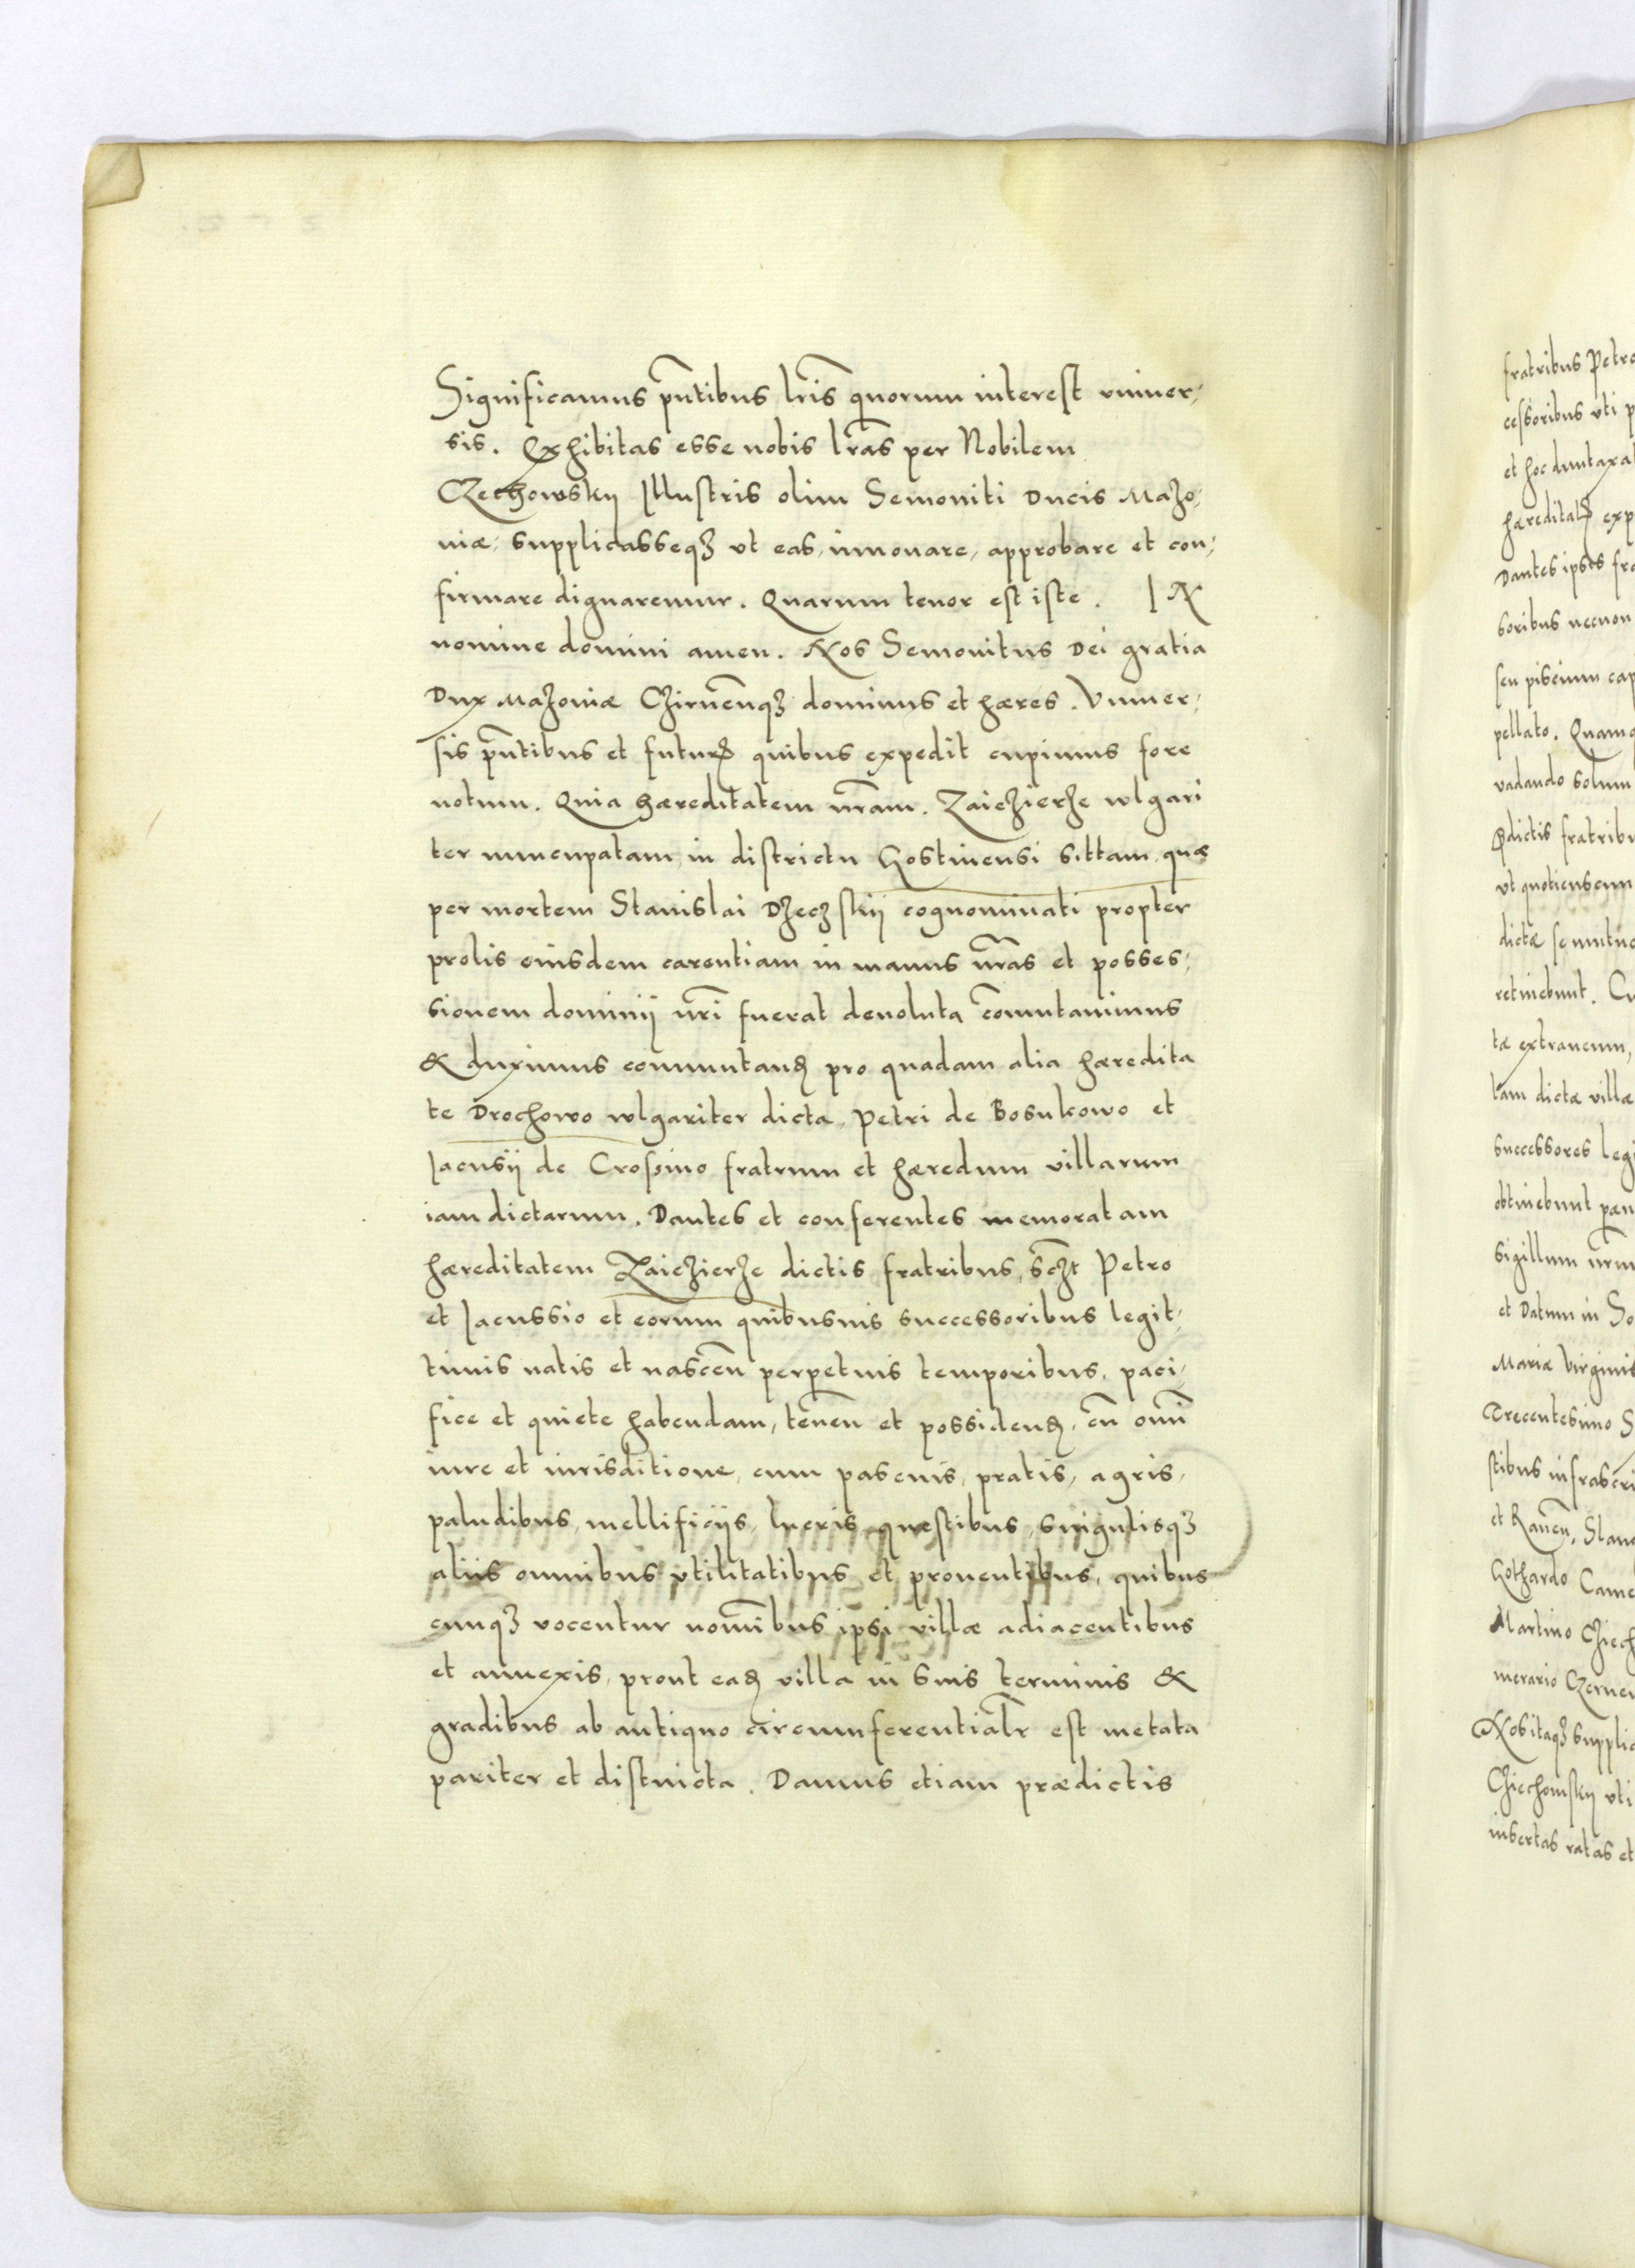 Significamus pñtibus lris quorum interest vniuer,
sis. Exhibitas esse nobis lras per Nobilem
Czechowskij Illustris olim Semouiti Ducis Mazo,
uiæ, supplicasseqz vt eas, innouare, approbare et con,
firmare dignaremur. Quarum tenor est iste. IN
nomine domini amen. Nos Semouitus Dei gratia
Dux Mazouiæ Czirnenqz dominus et hæres. Vniuer,
sis pñtibus et futur quibus expedit cupimus fore
notum. Quia hæreditatem nram. Zaiezierze wlgari
ter nuncupatam, in districtu Gostinensi sittam, quæ
per mortem Stanislai Dzeczskij cognominati propter
prolis eiusdem carentiam in manus nras et posses,
sionem dominij nri fuerat deuoluta comutauimus
& duximus commutand pro quadam alia hæredita
te Drochowo wlgariter dicta, Petri de Bosukowo et
Jacusij de Crossino fratrum et hæredum villarum
iam dictarum. Dantes et conferentes memoratam
hæreditatem Zaiezierze dictis fratribus, sczt Petro
et Jacussio et eorum quibusuis successoribus legit,
timis natis et nascen perpetuis temporibus, paci,
fice et quiete habendam, tenen et possidend, cu omi
iure et iurisditione, cum pascuis, pratis, agris,
paludibus, mellificijs, lucris, quæstibus, singulisqz
aliis omnibus vtilitatibus et prouentibus, quibus
cunqz vocentur nomibus ipsi villæ adiacentibus
et annexis, prout ead villa in suis terminis &
gradibus ab antiquo circumferentialr est metata
pariter et distincta. Damus etiam prædictis
fratribus Petro
cessoribus vti p
et hoc duntaxat
hæreditat exp
Dantes ipsis fra
soribus necnon
seu piscium cap
pellato. Quamq
vadando solum
pdictis fratribu
vt quotienscun
dictæ se mutuo
retinebunt. Cu
tæ extraneum,
tam dictæ villæ
successores legi
obtinebunt pæn
sigillum nrm
et Datum in So
Mariæ Virginis
Trecentesimo S
stibus infrascri
et Rauen, Slau
Gothardo Came
Martino Cziech
merario Czernen
Nos itaqz supplic
Cziechowskij vti
insertas ratas et